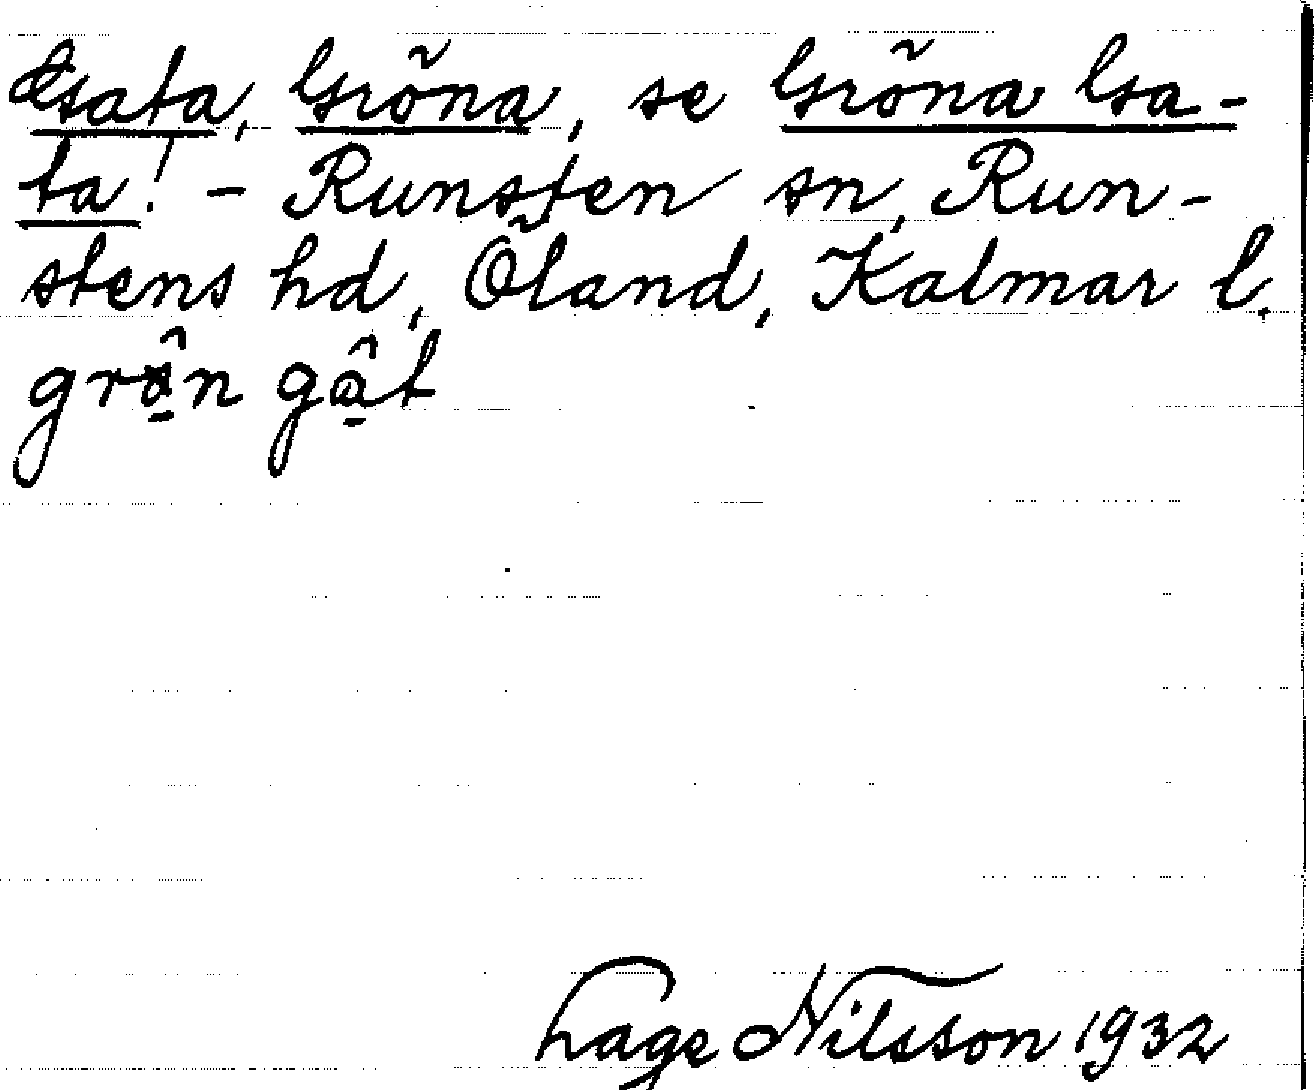 Gata, Gröna, se Gröna Ga-
ta! - Runsten sn, Run-
stens hd, Öland, Kalmar l.
grö̂n gât
Lage Nilsson 1932